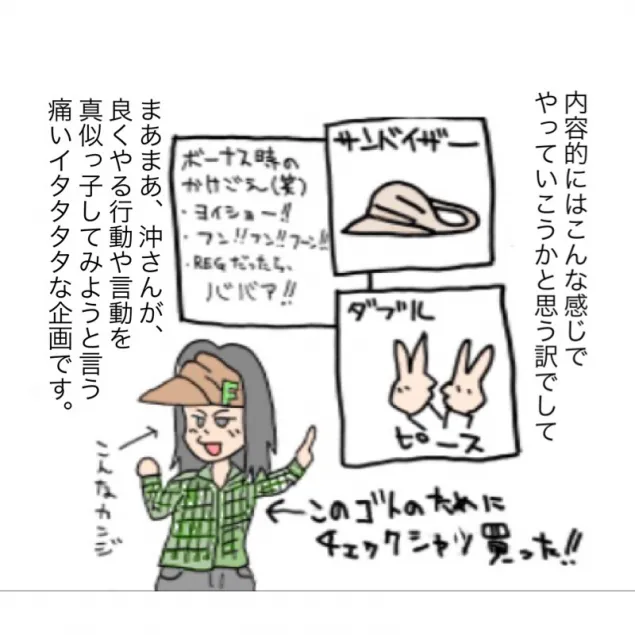 内容的にはこんな感じで
やっていこうかと思う訳でして
サンバイザー
ボーナス時の
かけごえ(笑)
・ヨイショー!!
・フン!!フン!!フーン!!
・REGだったら、
ババア!!
ダブル
ピース
F
こんなカンジ
←このゴトのために
チェックシャツ買った!!
まあまあ、沖さんが、
良くやる行動や言動を
真似っ子してみようと言う
痛いイタタタタな企画です。